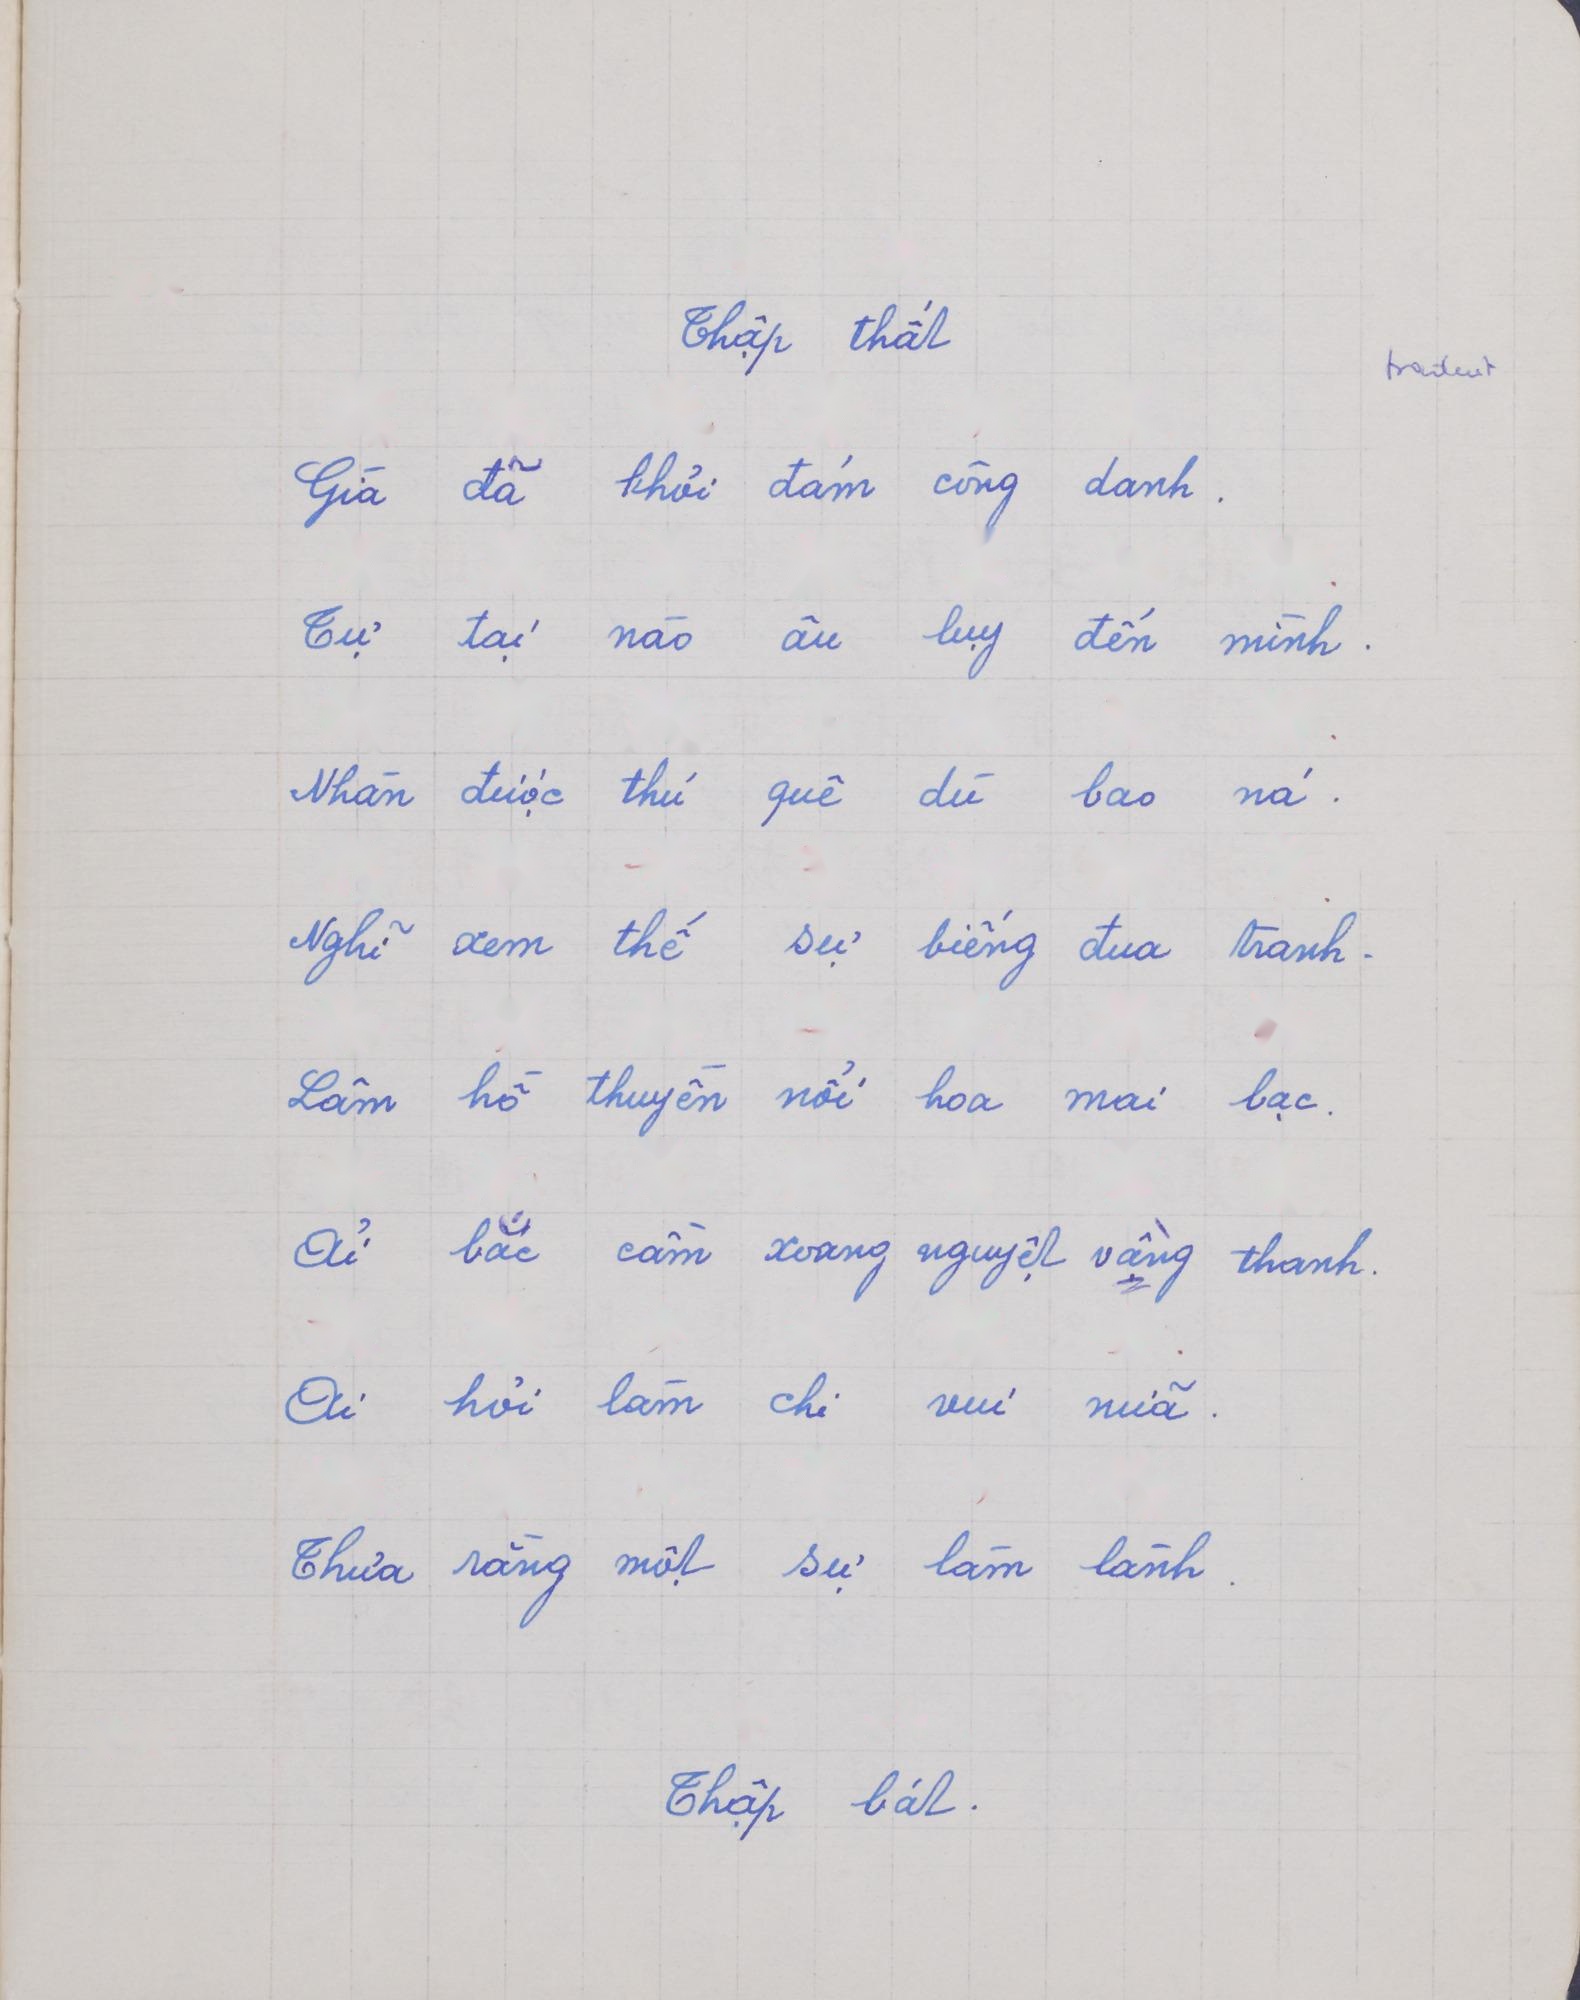 Thập thất
Già đã khỏi đám công danh.
Tự tại nào âu lụy đến mình.
Nhàn được thú quê dù bao ná.
Nghĩ xem thế sự biếng đua tranh.
Lâm hồ thuyền nổi hoa mai bạc.
Ải bắc cầm xoang nguyệt vầng thanh.
Ai hỏi làm chi vui nữa.
Thưa rằng một sự làm lành.
Thập bát.